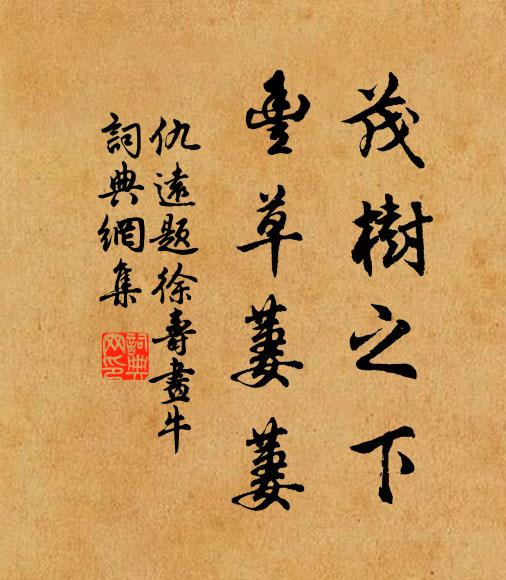 茂樹之下
豐草萋萋
仇遠題徐壽畫牛
詞典網集
詞典
网印